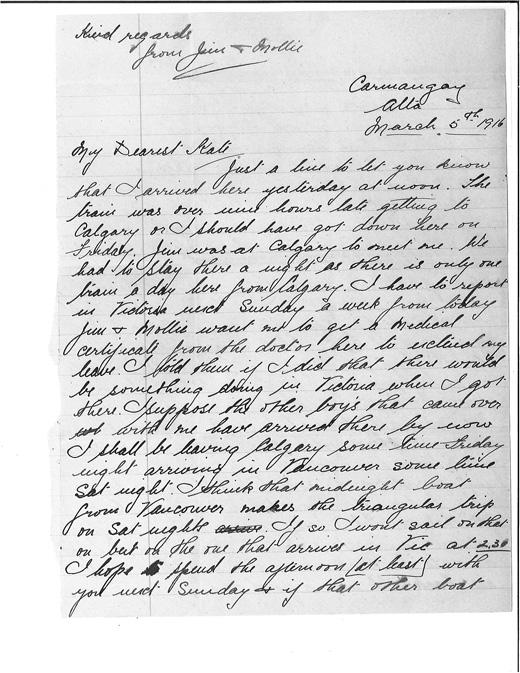 Kind regards
from Jim & Mollie
Carmangay
Alta
March 5th 1916
My Dearest Kate
Just a line to let you know
that I arrived here yesterday at noon. The
train was over nine hours late getting to
Calgary or I should have got down here on
Friday. Jim was at Calgary to meet me. We
had to stay there a night as there is only one
train a day here from Calgary. I have to report
in Victoria next Sunday a week from today
Jim & Mollie want me to get a Medical
certificate from the doctor here to extend my
leave I told them if I did that there would
be something doing in Victoria when I got
there. I suppose the other boys that came over
with me have arrived there by now
I shall be leaving Calgary some time Friday
night arriving in Vancouver some time
Sat night. I think that midnight boat
from Vancouver makes the triangular trip
on Sat nights If so I wont sail on that
on but on the one that arrives in Vic at 2.30
I hope to spend the afternoon (at least) with
you next Sunday & if that other boat